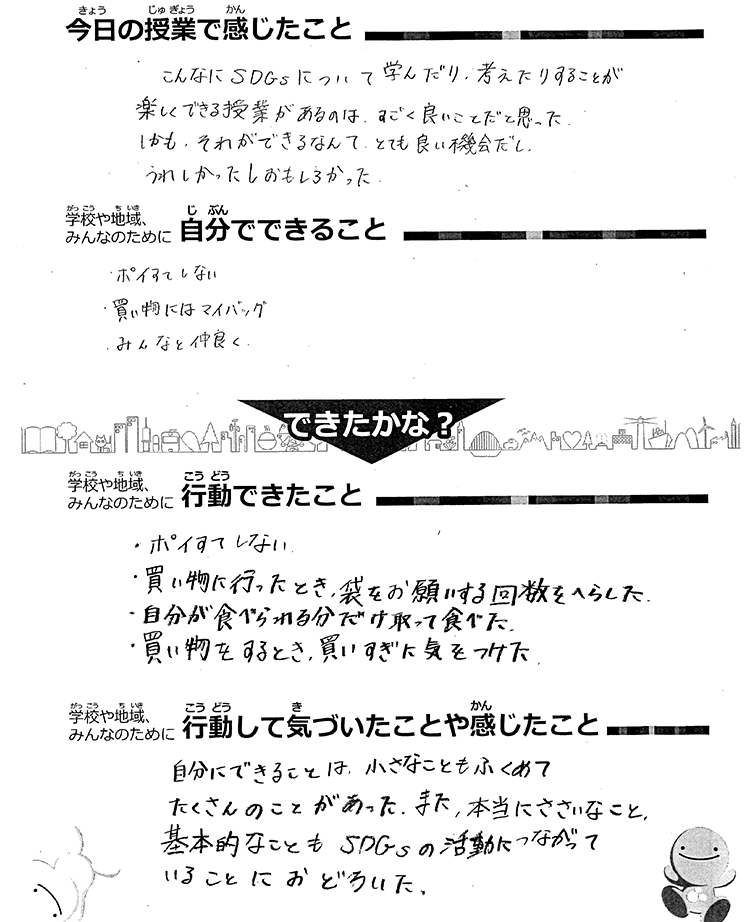 今日の授業で感じたこと
こんなにSDGsについて学んだり、考えたりすることが
楽しくできる授業があるのは、すごく良いことだと思った。
しかも、それができるなんて、とても良い機会だし、
うれしかったしおもしろかった。
学校や地域、
みんなのために 自分でできること
・ポイすてしない
・買い物にはマイバッグ
・みんなと仲良く
できたかな？
学校や地域、
みんなのために 行動できたこと
・ポイすてしない
・買い物に行ったとき、袋をお願いする回数をへらした。
・自分が食べられる分だけ取って食べた。
・買い物をするとき、買いすぎに気をつけた。
学校や地域、
みんなのために 行動して気づいたことや感じたこと
自分にできることは、小さなこともふくめて
たくさんのことがあった。また、本当にささいなこと、
基本的なこともSDGsの活動につながって
いることにおどろいた。